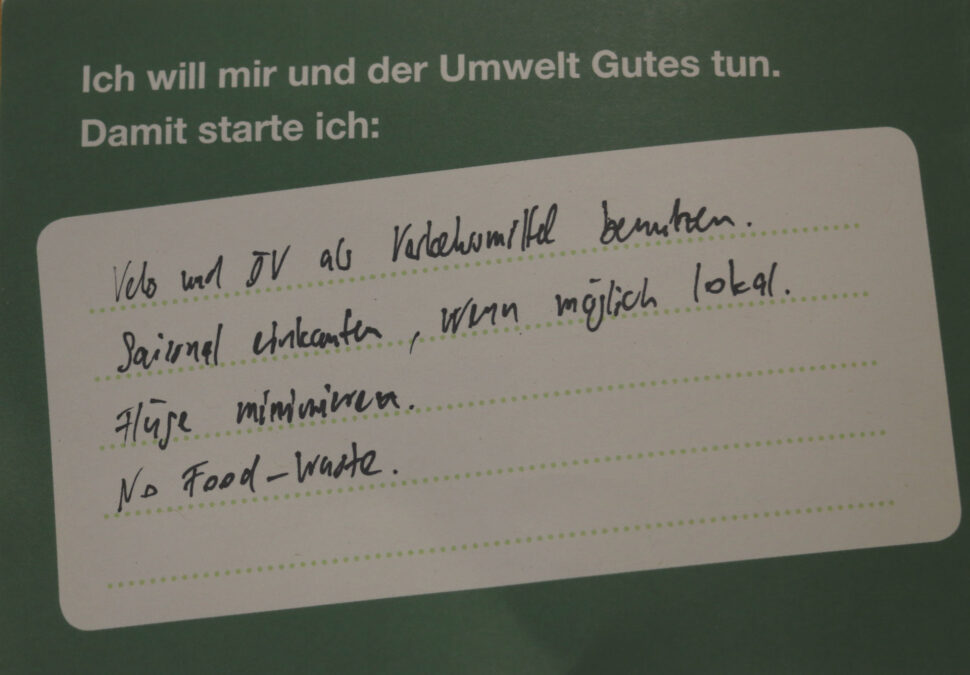 Ich will mir und der Umwelt Gutes tun.
Damit starte ich:
Velo und ÖV als Verkehrsmittel benutzen.
Saisonal einkaufen, wenn möglich lokal.
Flüge minimieren.
No Food-Waste.